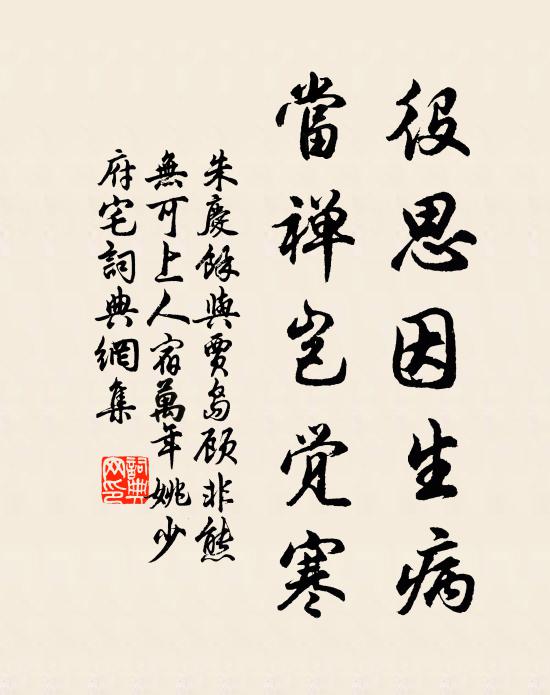 役思因生病
當禅岂觉寒
朱慶餘與賈島顾非熊
無可上人宿萬年姚少
府宅詞典網集
詞典
网印